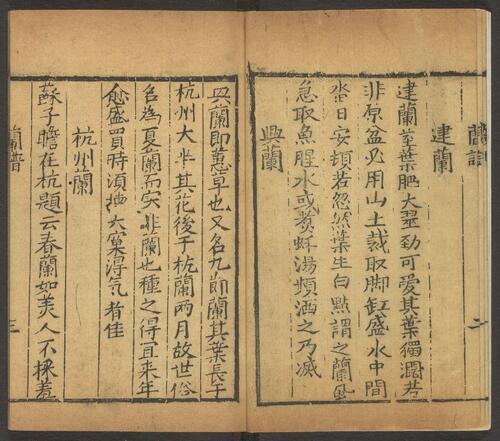 建蘭
建蘭莖葉肥大翠勁可愛其葉獨濶若
非原盆必用山土裁取脚缸盛水中間
沓日安頓若忽然葉生白點謂之蘭風
急取魚腥水或煑蚌湯頻洒之乃滅
興蘭
二
興蘭即蕙草也又名九節蘭其葉長于
杭州大半其花後于杭蘭兩月故世俗
名為夏蘭而实非蘭也種之得宜来年
愈盛買時須揀大窠得气者佳
杭州蘭
蘇子瞻在杭題云春蘭如美人不採羞
蘭譜
三